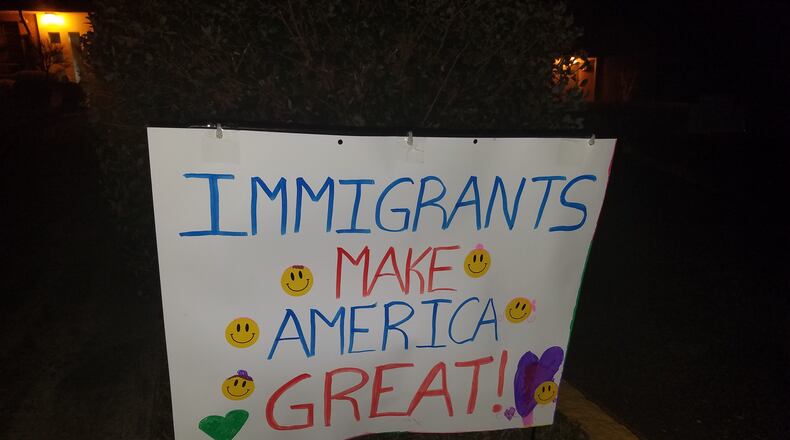 IMMIGRANTS
MAKE
AMERICA
GREAT!